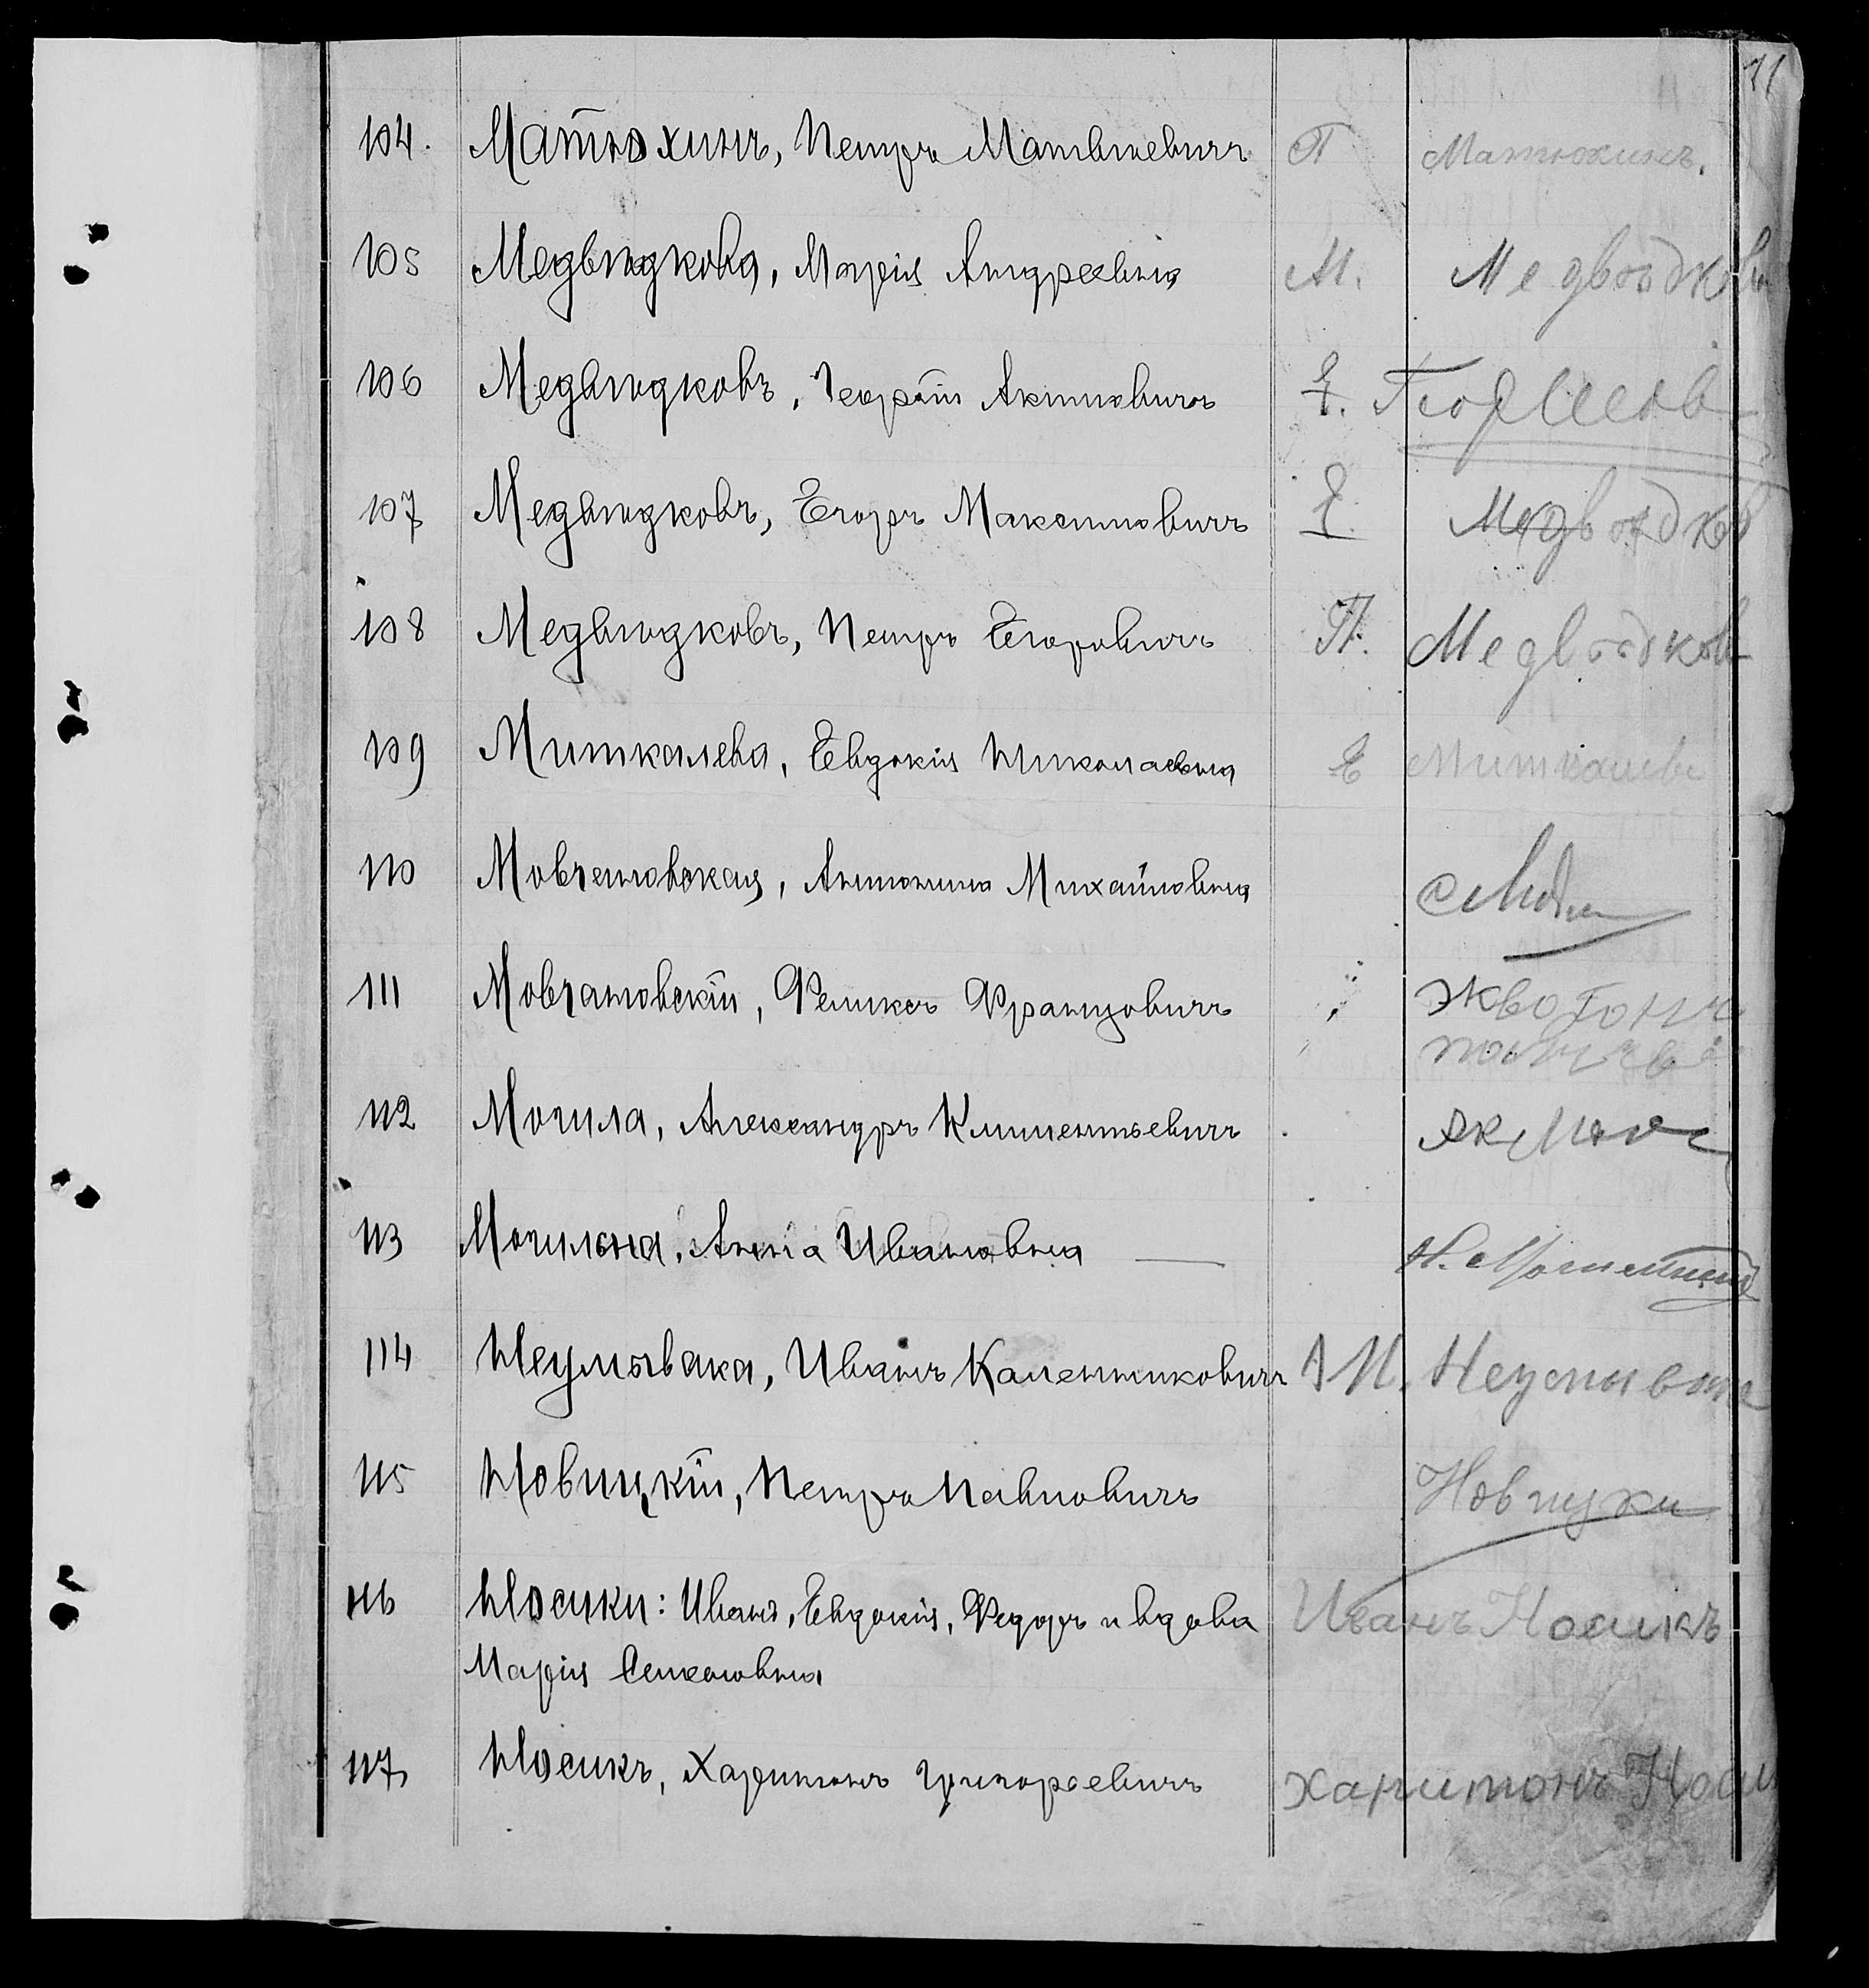 11
104. Матюхинъ, Петръ Матвѣевичъ П Матюхинъ.
105 Медвѣдкова, Марія Андреевна М. Медвѣдкова
106 Медвѣдковъ, Георгій Акимовичъ Г.
107 Медвѣдковъ, Егоръ Максимовичъ Е. Медвѣдков
108 Медвѣдковъ, Петръ Егоровичъ П. Медвѣдков
109 Миткалева, Евдокія Николаевна Е Миткалева
110 Мовчановская, Антонина Михайловна
111 Мовчановскій, Феликсъ Францовичъ
112 Могила, Александръ Климентьевичъ
113 Могильна, Анна Ивановна
114 Неумывака, Иванъ Калентиковичъ И. Неумывака
115 Новицкій, Петръ Павловичъ Новицки
116 Носики: Иванъ, Евдокія, Федоръ и вдова Иванъ Носикъ
Марія Семеновна
117 Носикъ, Харитонъ Григорьевичъ Харитонъ Носи